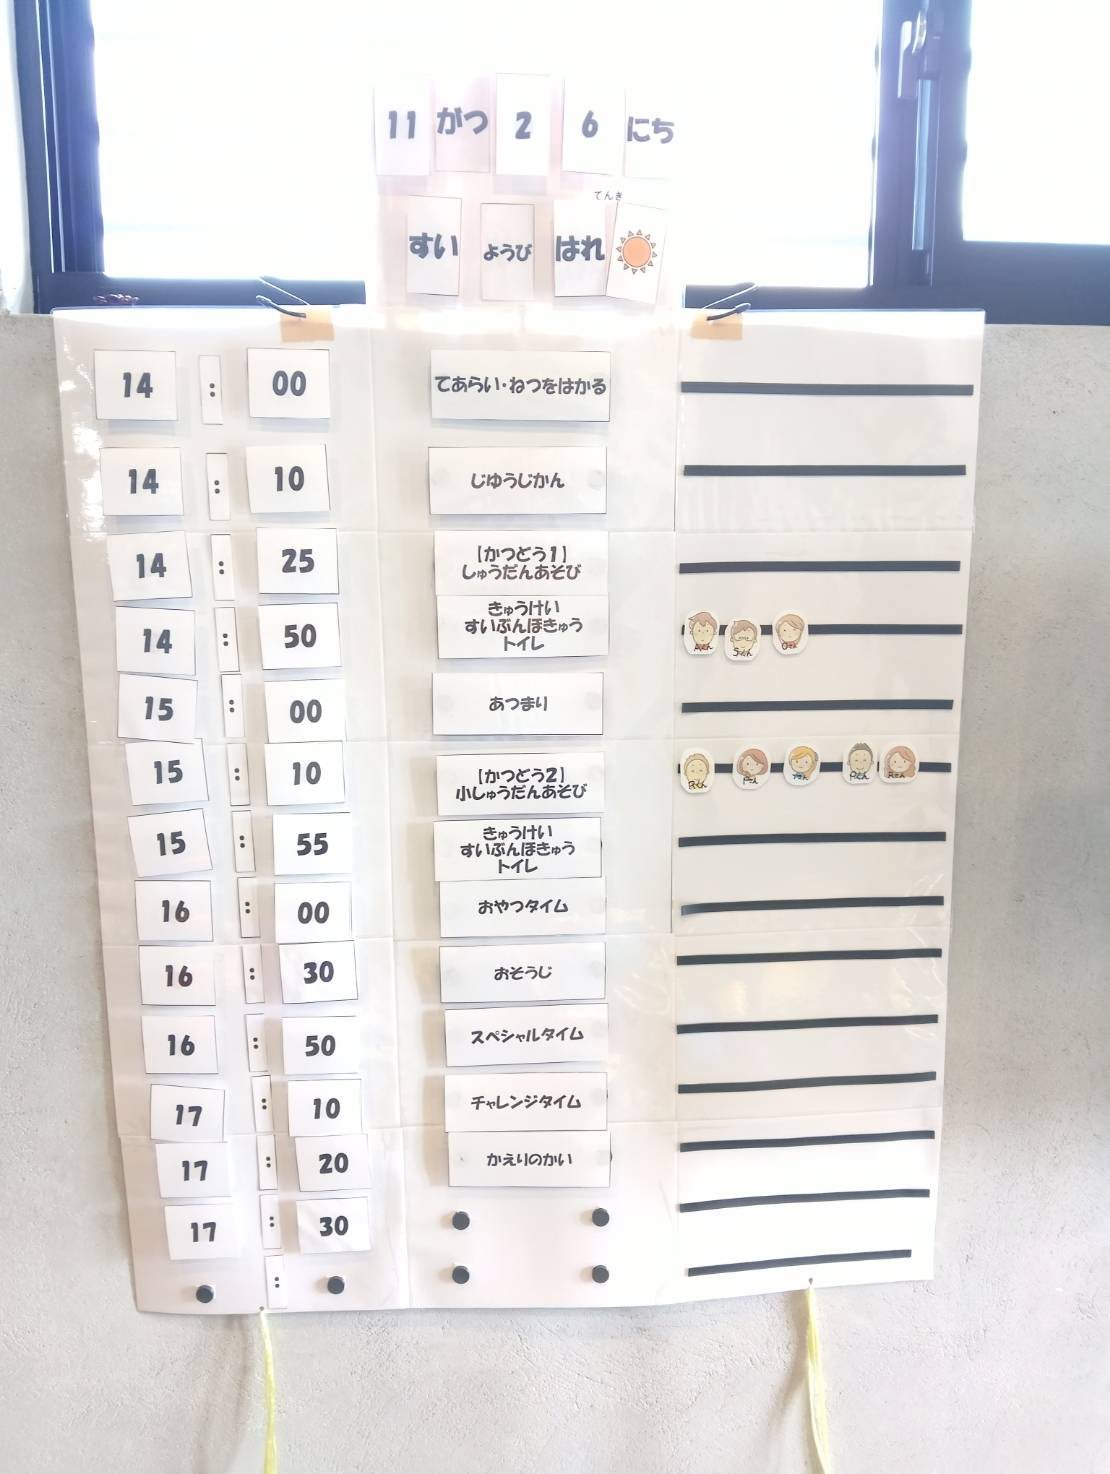 11 がつ 2 6 にち
てんき
すい ようび はれ
14 : 00 てあらい・ねつをはかる
14 : 10 じゆうじかん
14 : 25 【かつどう1】
しゅうだんあそび
14 : 50 きゅうけい
すいぶんほきゅう
トイレ
15 : 00 あつまり
15 : 10 【かつどう2】
小しゅうだんあそび
15 : 55 きゅうけい
すいぶんほきゅう
トイレ
16 : 00 おやつタイム
16 : 30 おそうじ
16 : 50 スペシャルタイム
17 : 10 チャレンジタイム
17 : 20 かえりのかい
17 : 30
: